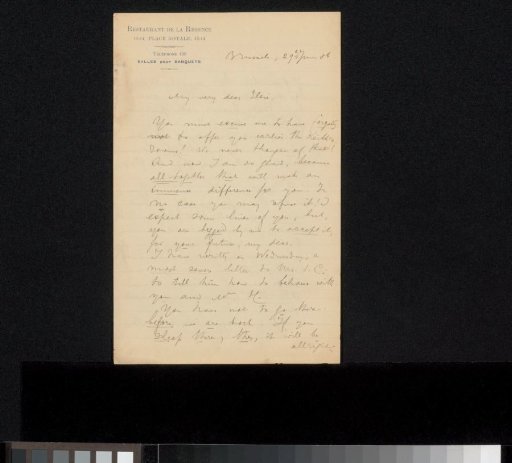 RESTAURANT DE LA REGENCE
PLACE ROYALE,
TELEPHONE
SALLES POUR BANQUETS
Brussels, 29 June
My very dear
You must excuse me to have forgotten
not to offer you earlier the
never of that!
And now I am so glad, because
all together that will make an
immense difference for you. In
no case you may refuse it! I
expect some lines of you, but,
you are begged by me to accept it,
for your future, my dear.
I have written on Wednesday, a
most letter to Mr.
to tell him how to behave with
you and
You have not to go there
before we are back. If you
sleep there, then, it will be
allright.